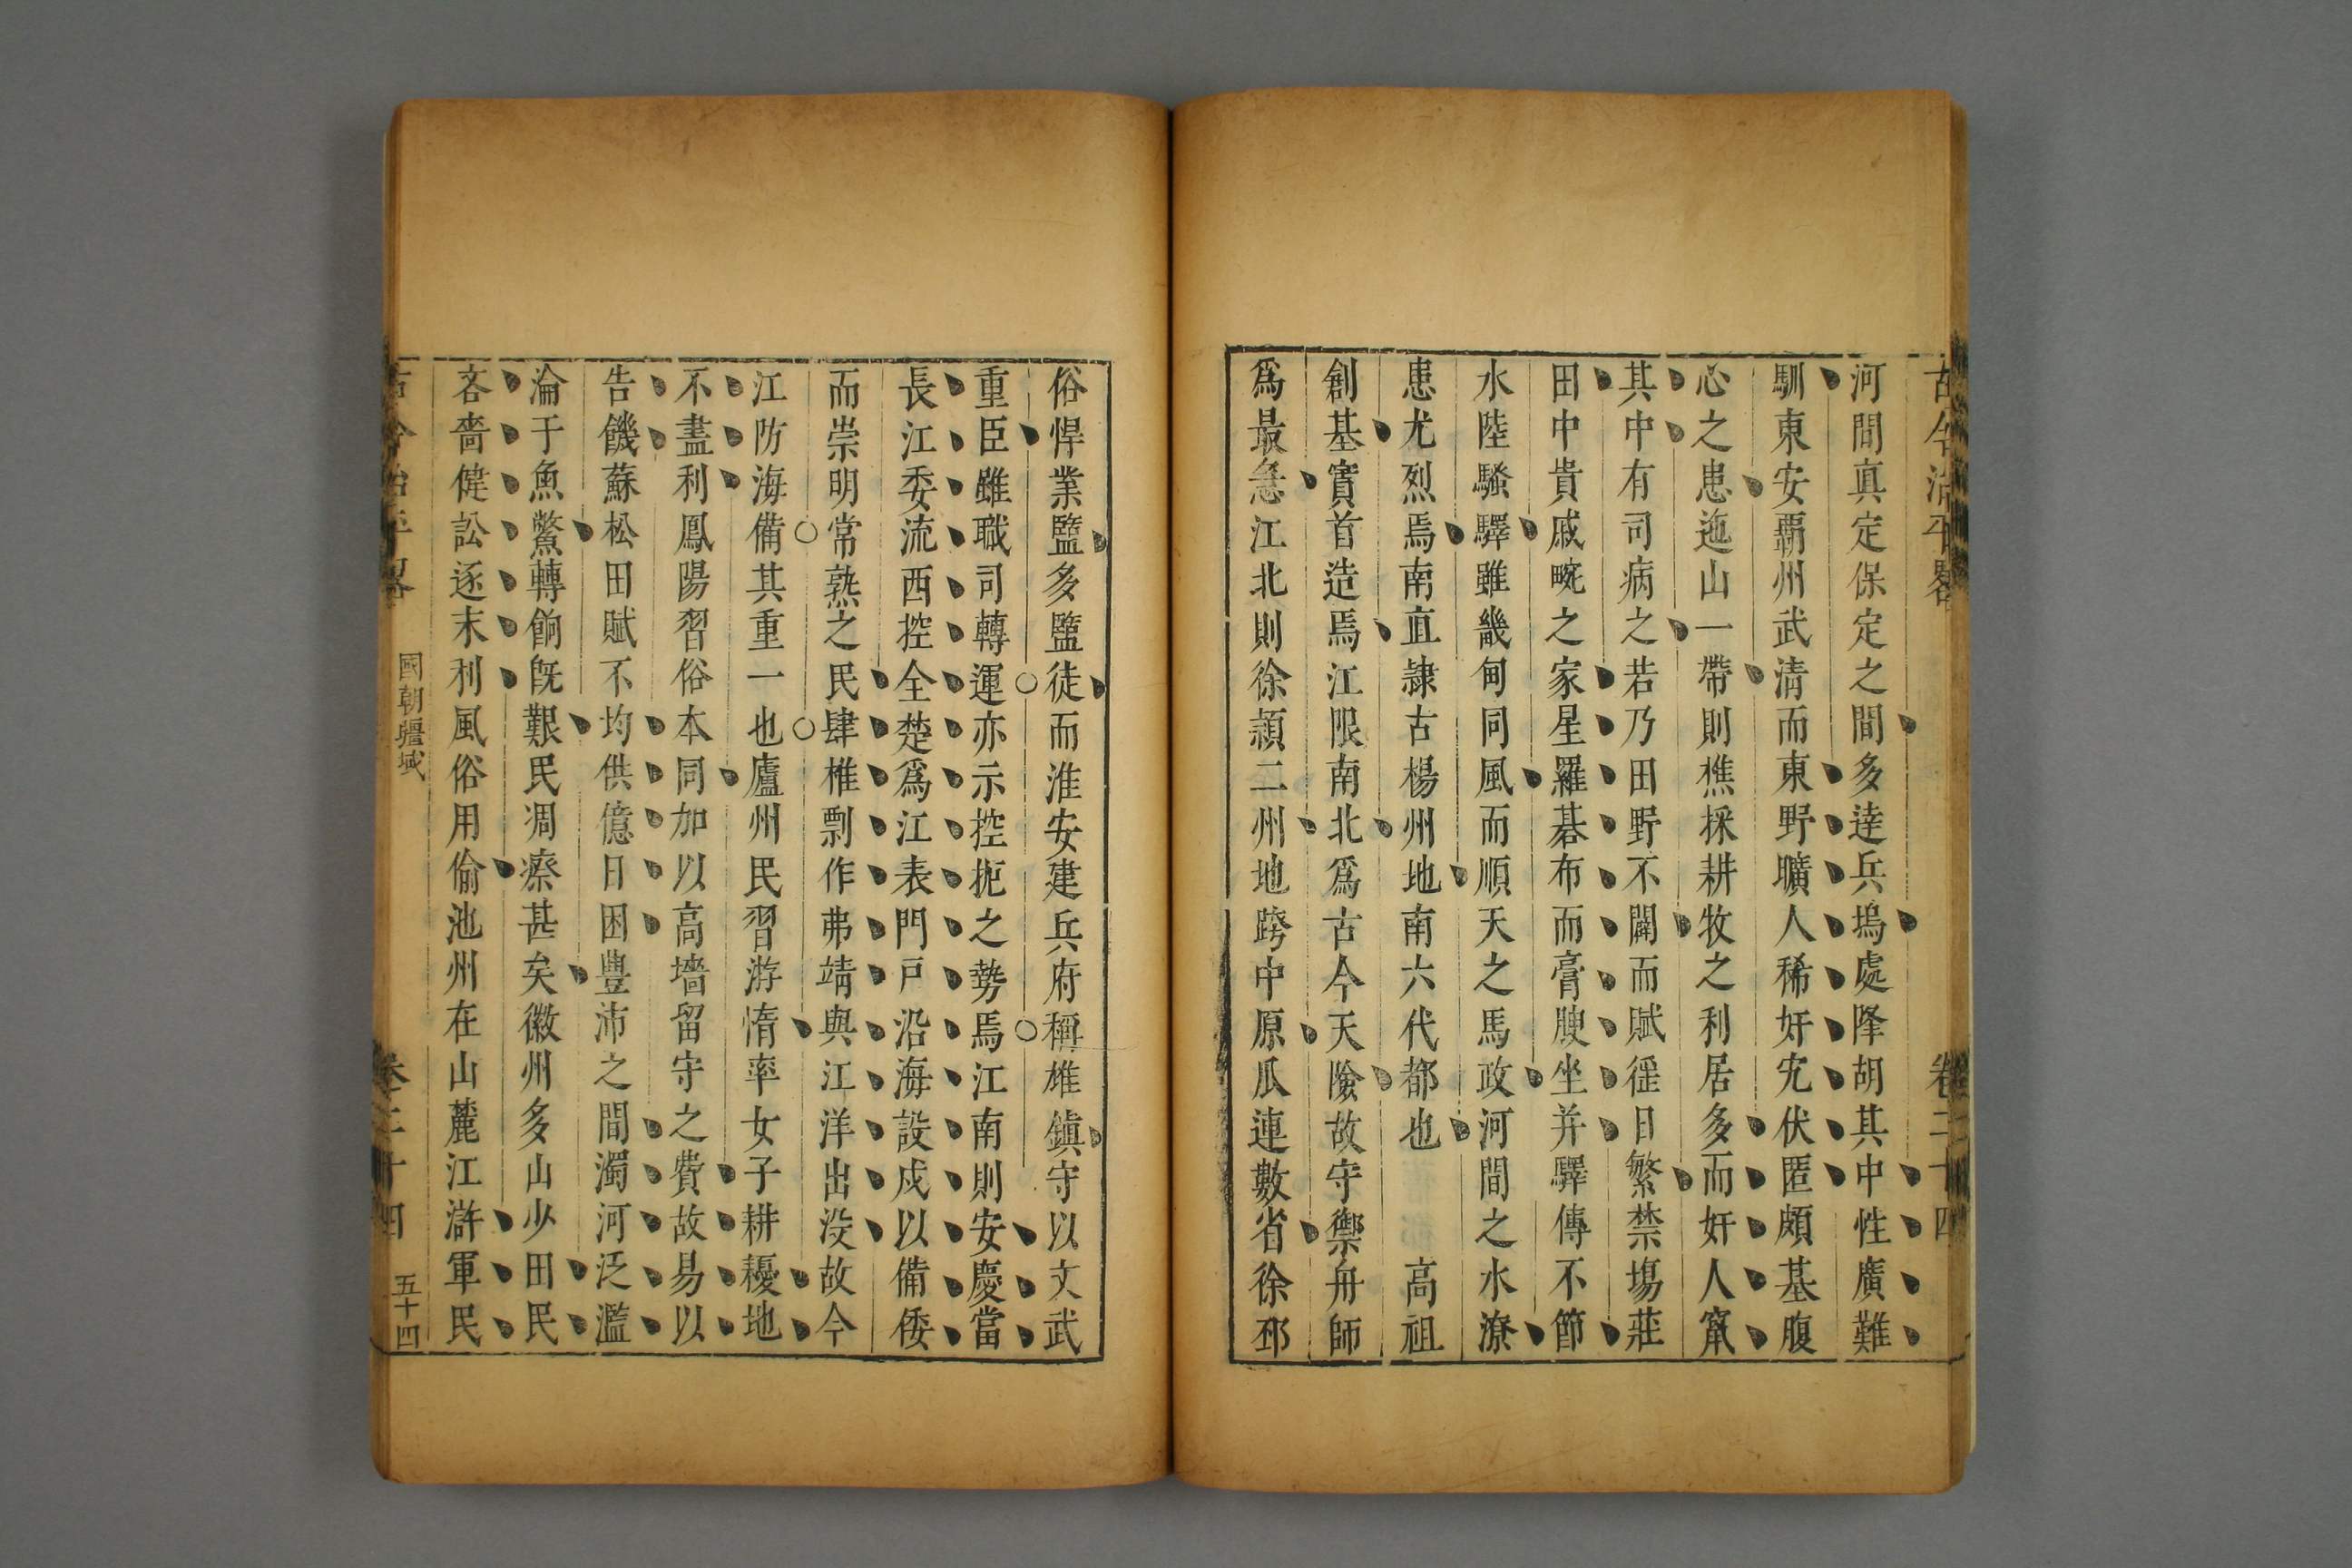 古今治平畧 卷二十四
河間真定保定之間多逹兵塢處降胡其中性廣難
馴東安覇州武清而東野曠人稀奸宄伏匿頗基腹
心之患迤山一帶則樵採耕牧之利居多而奸人竄
其中有司病之若乃田野不闢而賦徭日繁禁塲莊
田中貴戚畹之家星羅碁布而膏腴坐并驛傳不節
水陸騷驛雖畿甸同風而順天之馬政河間之水潦
患尤烈焉南直隷古楊州地南六代都也 高祖
創基實首造焉江限南北爲古今天險故守禦舟師
爲最急江北則徐潁二州地跨中原瓜連數省徐邳
俗悍業鹽多鹽徒而淮安建兵府稱雄鎮守以文武
重臣雖職司轉運亦示控扼之勢焉江南則安慶當
長江委流西控全楚爲江表門戸沿海設戍以備倭
而崇明常熟之民肆椎剽作弗靖與江洋出没故今
江防海備其重一也廬州民習游惰率女子耕耰地
不盡利鳳陽習俗本同加以高墻留守之費故易以
告饑蘇松田賦不均供億日困豐沛之間濁河泛濫
淪于魚鱉轉餉旣艱民凋瘵甚矣徽州多山少田民
吝嗇健訟逐末利風俗用偷池州在山麓江滸軍民
古今治平畧 國朝疆域 卷二十四 五十四